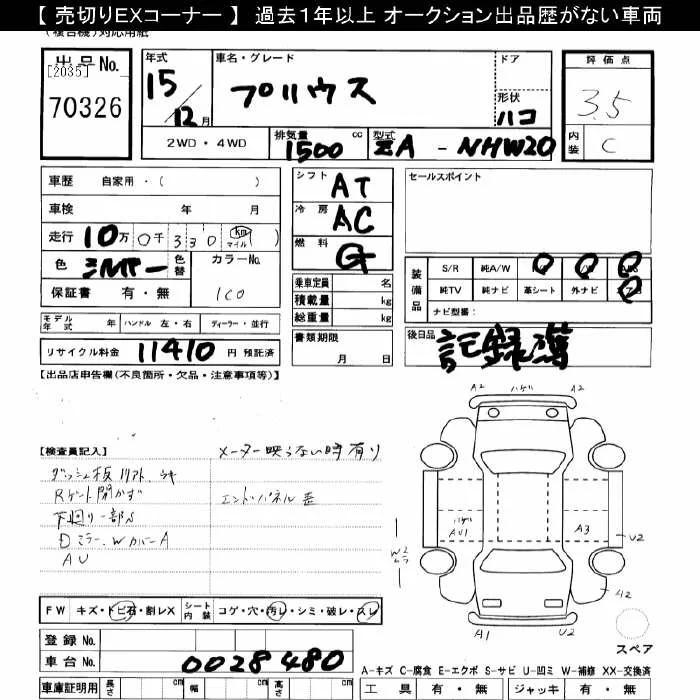 【 売切りEXコーナー 】 過去1年以上 オークション出品歴がない車両
(複合機)対応用紙
出品No.
[2035]
70326
年式
15/12月
車名・グレード
プリウス
ドア
形状
ハコ
評価点
3.5
内装
C
2WD・4WD
排気量
1500
cc
型式
ZA - NHW20
車歴 自家用・( )
車検 年 月
走行 10万 0千 330 km マイル ( )
色 シルバー
色替
カラーNo.
1C0
保証書 有・無
シフト AT
冷房 AC
燃料 G
乗車定員 名
積載量 kg
総重量 kg
書類期限
月 日
セールスポイント
装備品
S/R 純A/W
純TV 純ナビ 革シート 外ナビ
ナビ型番:
モデル年式 年 ハンドル 左・右 ディーラー・並行
リサイクル料金 11410 円 預託済
後日品 記録簿
【出品店申告欄(不良箇所・欠品・注意事項等)】
【検査員記入】
メーター映らない時有り
Rゲート開かず
エンドパネル歪
下回り一部S
Dミラー、WカバーA
AU
A2 ハゲ A2
ハゲ
AU1
A3
U2
A2
A1
U2
スペア
FW キズ・トビ石・割レX
シート内装 コゲ・穴・汚レ・シミ・破レ・スレ
登録 No.
車台 No. 0028480
車庫証明用 長さ cm 幅 cm 高さ cm
A-キズ C-腐食 E-エクボ S-サビ U-凹ミ W-補修 XX-交換済
工具 有・無 ジャッキ 有・無